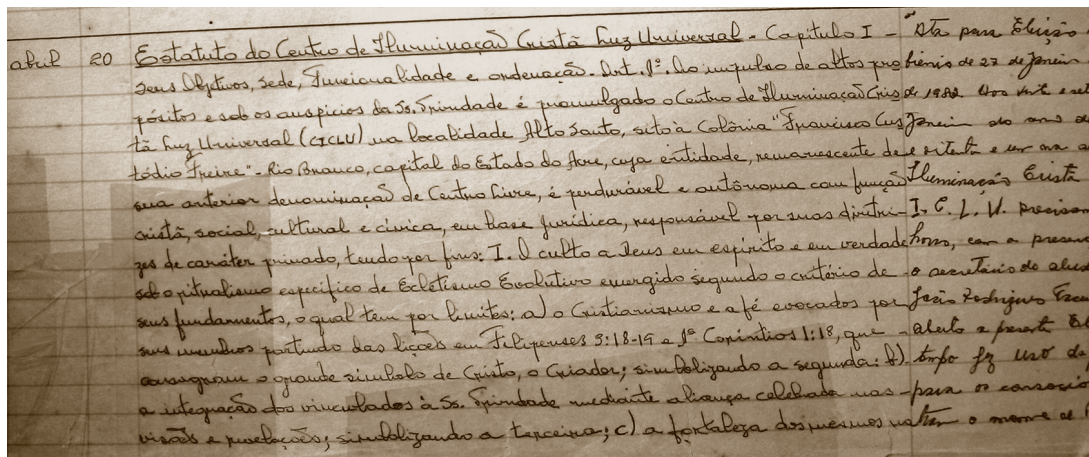 abril 20 Estatuto do Centro de Iluminação Cristã Luz Universal - Capítulo I -
seus Objetivos, sede, Funcionalidade e ordenação. Art. 1º. Ao impulso de altos pro
pósitos e sob os auspícios da Ss. Trindade é promulgado o Centro de Iluminação Cris
tã Luz Universal (CICLU) na localidade Alto Santo, sito à Colônia "Francisco Cus
tódio Freire" - Rio Branco, capital do Estado do Acre, cuja entidade, remanescente de
sua anterior denominação de Centro Livre, é perdurável e autônoma com função
cristã, social, cultural e cívica, em base jurídica, responsável por suas diretri-
zes de caráter privado, tendo por fins: I. O culto a Deus em espírito e em verdade
sob o ritualismo específico de Ecletismo Evolutivo emergido segundo o critério de
seus fundamentos, o qual tem por limites: a) o Cristianismo e a fé evocados por
seus membros partindo das lições em Filipenses 3:18-19 e 1ª Coríntios 1:18, que
consagram o grande símbolo de Cristo, o Criador; simbolizando a segunda: b)
a integração dos vinculados à Ss. Trindade mediante aliança celebrada nas
visões e revelações; simbolizando a terceira; c) a fortaleza dos mesmos na
Ata para Eleição
biênio de 27 de Janeiro
de 1982 Aos vinte e set
Janeiro do ano de
e oitenta e um na
Iluminação Cristã
I. C. L. U. precisa
horas, com a presen
o secretário do
João Rodrigues
aberto a presente
fez uso da
para os
o nome de